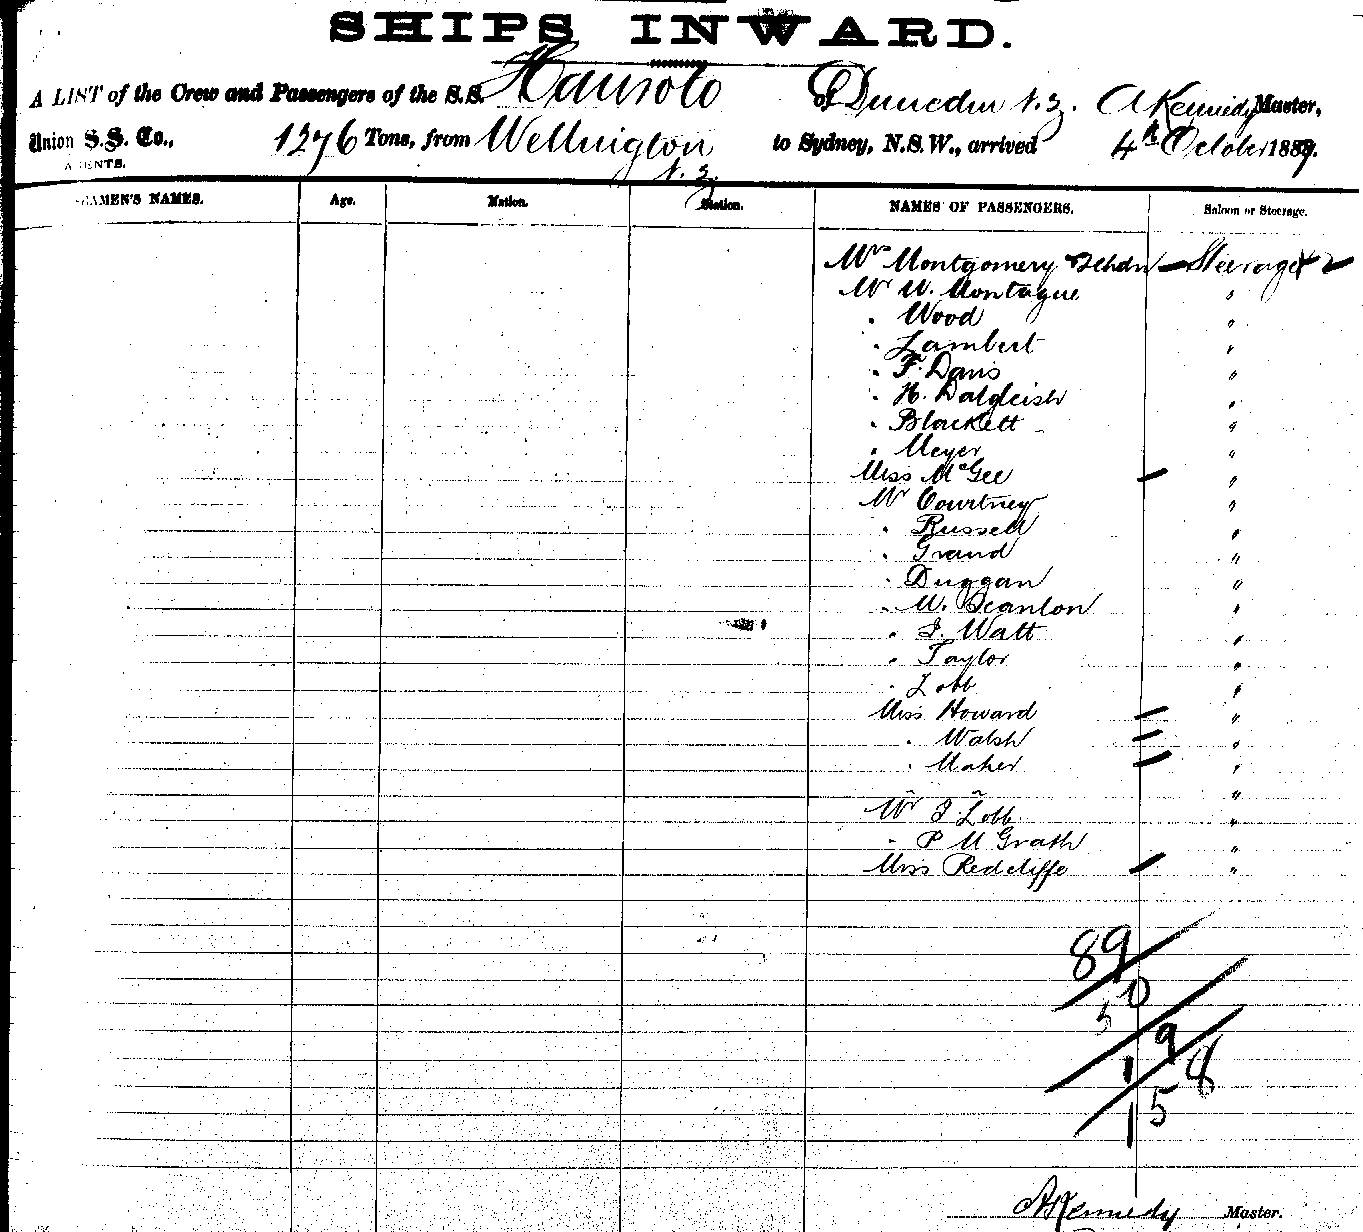 SHIPS INWARD.
A LIST of the Crew and Passengers of the S.S. Hauroto of Dunedin N.Z. A Kennedy Master,
Union S.S. Co., 1276 Tons, from Wellington to Sydney, N.S.W., arrived 4th October 1887.
AGENTS. N.Z.
SEAMEN'S NAMES. Age. Nation. Station. NAMES OF PASSENGERS. Saloon or Steerage.
Mrs Montgomery & 2 chdn Steerage
Mr W. Montague "
" Wood "
" Lambert "
" F. Davis "
" H. Dalgleish "
" Blackett "
" Meyer "
Miss McGee "
Mr Courtney "
" Russell "
" Grand "
" Duggan "
" W. Scanlon "
" J. Watt "
" Taylor "
" Lobb "
Miss Howard "
" Walsh "
" Maher "
"
Mr J Lobb "
" P McGrath "
Miss Redcliffe "
89
50
19
158
A Kennedy Master.